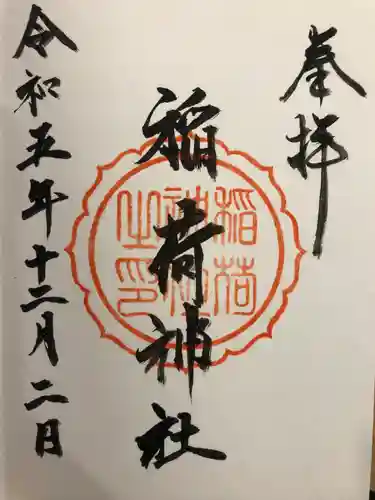 奉拝
稲荷神社
稲荷
神社
之印
令和五年十二月二日